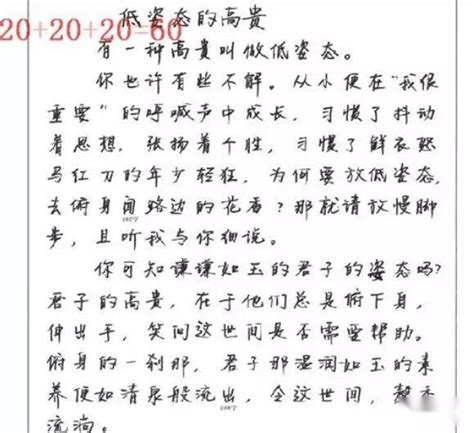 20+20+20=60
低姿态的高贵
有一种高贵叫做低姿态。
你也许有些不解。从小便在“我很
重要”的呼喊声中成长，习惯了抖动
着思想，张扬着个性，习惯了鲜衣怒
马红刀的年少轻狂，为何要放低姿态，
去俯身闻路边的花香？那就请放慢脚
步，且听我与你细说。
你可知谦谦如玉的君子的姿态吗？
君子的高贵，在于他们总是俯下身，
伸出手，笑问这世间是否需要帮助。
俯身的一刹那，君子那温润如玉的素
养便如清泉般流出，令这世间，馨香
流淌。